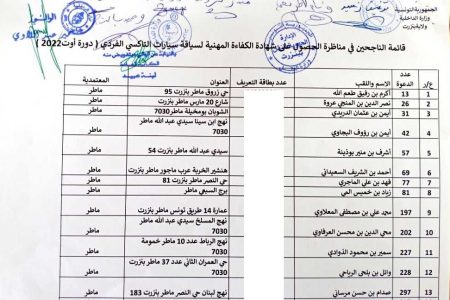 الجمهورية التونسية
وزارة الداخلية
ولاية بنزرت
قائمة الناجحين في مناظرة الحصول على شهادة الكفاءة المهنية لسياقة سيارات التاكسي الفردي ( دورة أوت2022 )
ع/ر عدد الدعوة الاسم واللقب عدد بطاقة التعريف العنوان المعتمدية
1 13 أكرم بن رفيق طعم الله حي زروق ماطر بنزرت 95 ماطر
2 26 نصر الدين بن المنجي عروة شارع 20 مارس ماطر بنزرت ماطر
3 31 أيمن بن عثمان الدريدي الشوبان بومخيلة ماطر 7030 ماطر
4 42 أيمن بن رؤوف البجاوي نهج ابن سينا سيدي عبد الله ماطر 7030 ماطر
5 57 أشرف بن منير بوذينة سيدي عبد الله ماطر بنزرت 54 ماطر
6 69 أحمد بن الشريف السعيداني هنشير الخربة عرب ماجور ماطر بنزرت ماطر
7 77 فهد بن علي الماجري حي النصر ماطر بنزرت 81 ماطر
8 81 زياد بن خميس العي برج السبعي ماطر ماطر
9 197 محمد علي بن مصطفى المعلاوي عمارة 14 طريق تونس ماطر بنزرت ماطر
10 202 محي الدين بن محسن العرفاوي نهج المسلخ سيدي عبد الله ماطر 7030 ماطر
11 213 سمير بن محمود الذوادي نهج الرباط عدد 10 ماطر خمومة 7030 ماطر
12 227 وائل بن يحلى الرياحي حي العمران الثاني عدد 37 ماطر بنزرت 7030 ماطر
13 297 صدام بن حسن مرساني نهج لبنان حي النصر ماطر بنزرت 183 ماطر